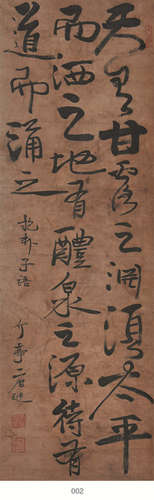 天有甘露之淵須太平
而洒之地有醴泉之源待有
道而涌之
抱朴子語
002